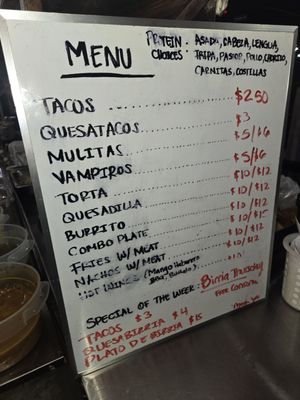 MENU
PROTEIN CHOICES : ASADA, CABEZA, LENGUA,
TRIPA, PASTOR, POLLO, CHORIZO,
CARNITAS, COSTILLAS
TACOS ............ $2.50
QUESATACOS ............ $3
MULITAS ............ $5/$6
VAMPIROS ............ $5/$6
TORTA ............ $10/$12
QUESADILLA ............ $10/$12
BURRITO ............ $10/$12
COMBO PLATE ............ $10/$15
FRIES W/ MEAT ............ $10/$12
NACHOS W/ MEAT ............ $10/$12
HOT WINGS (Mango Habanero
BBQ, Buffalo)
SPECIAL OF THE WEEK: Birria Thursday
TACOS $3 Free Consome
QUESABIRRIA $4
PLATO DE BIRRIA $15